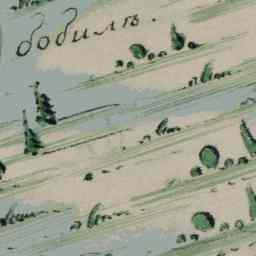 бобилъ.